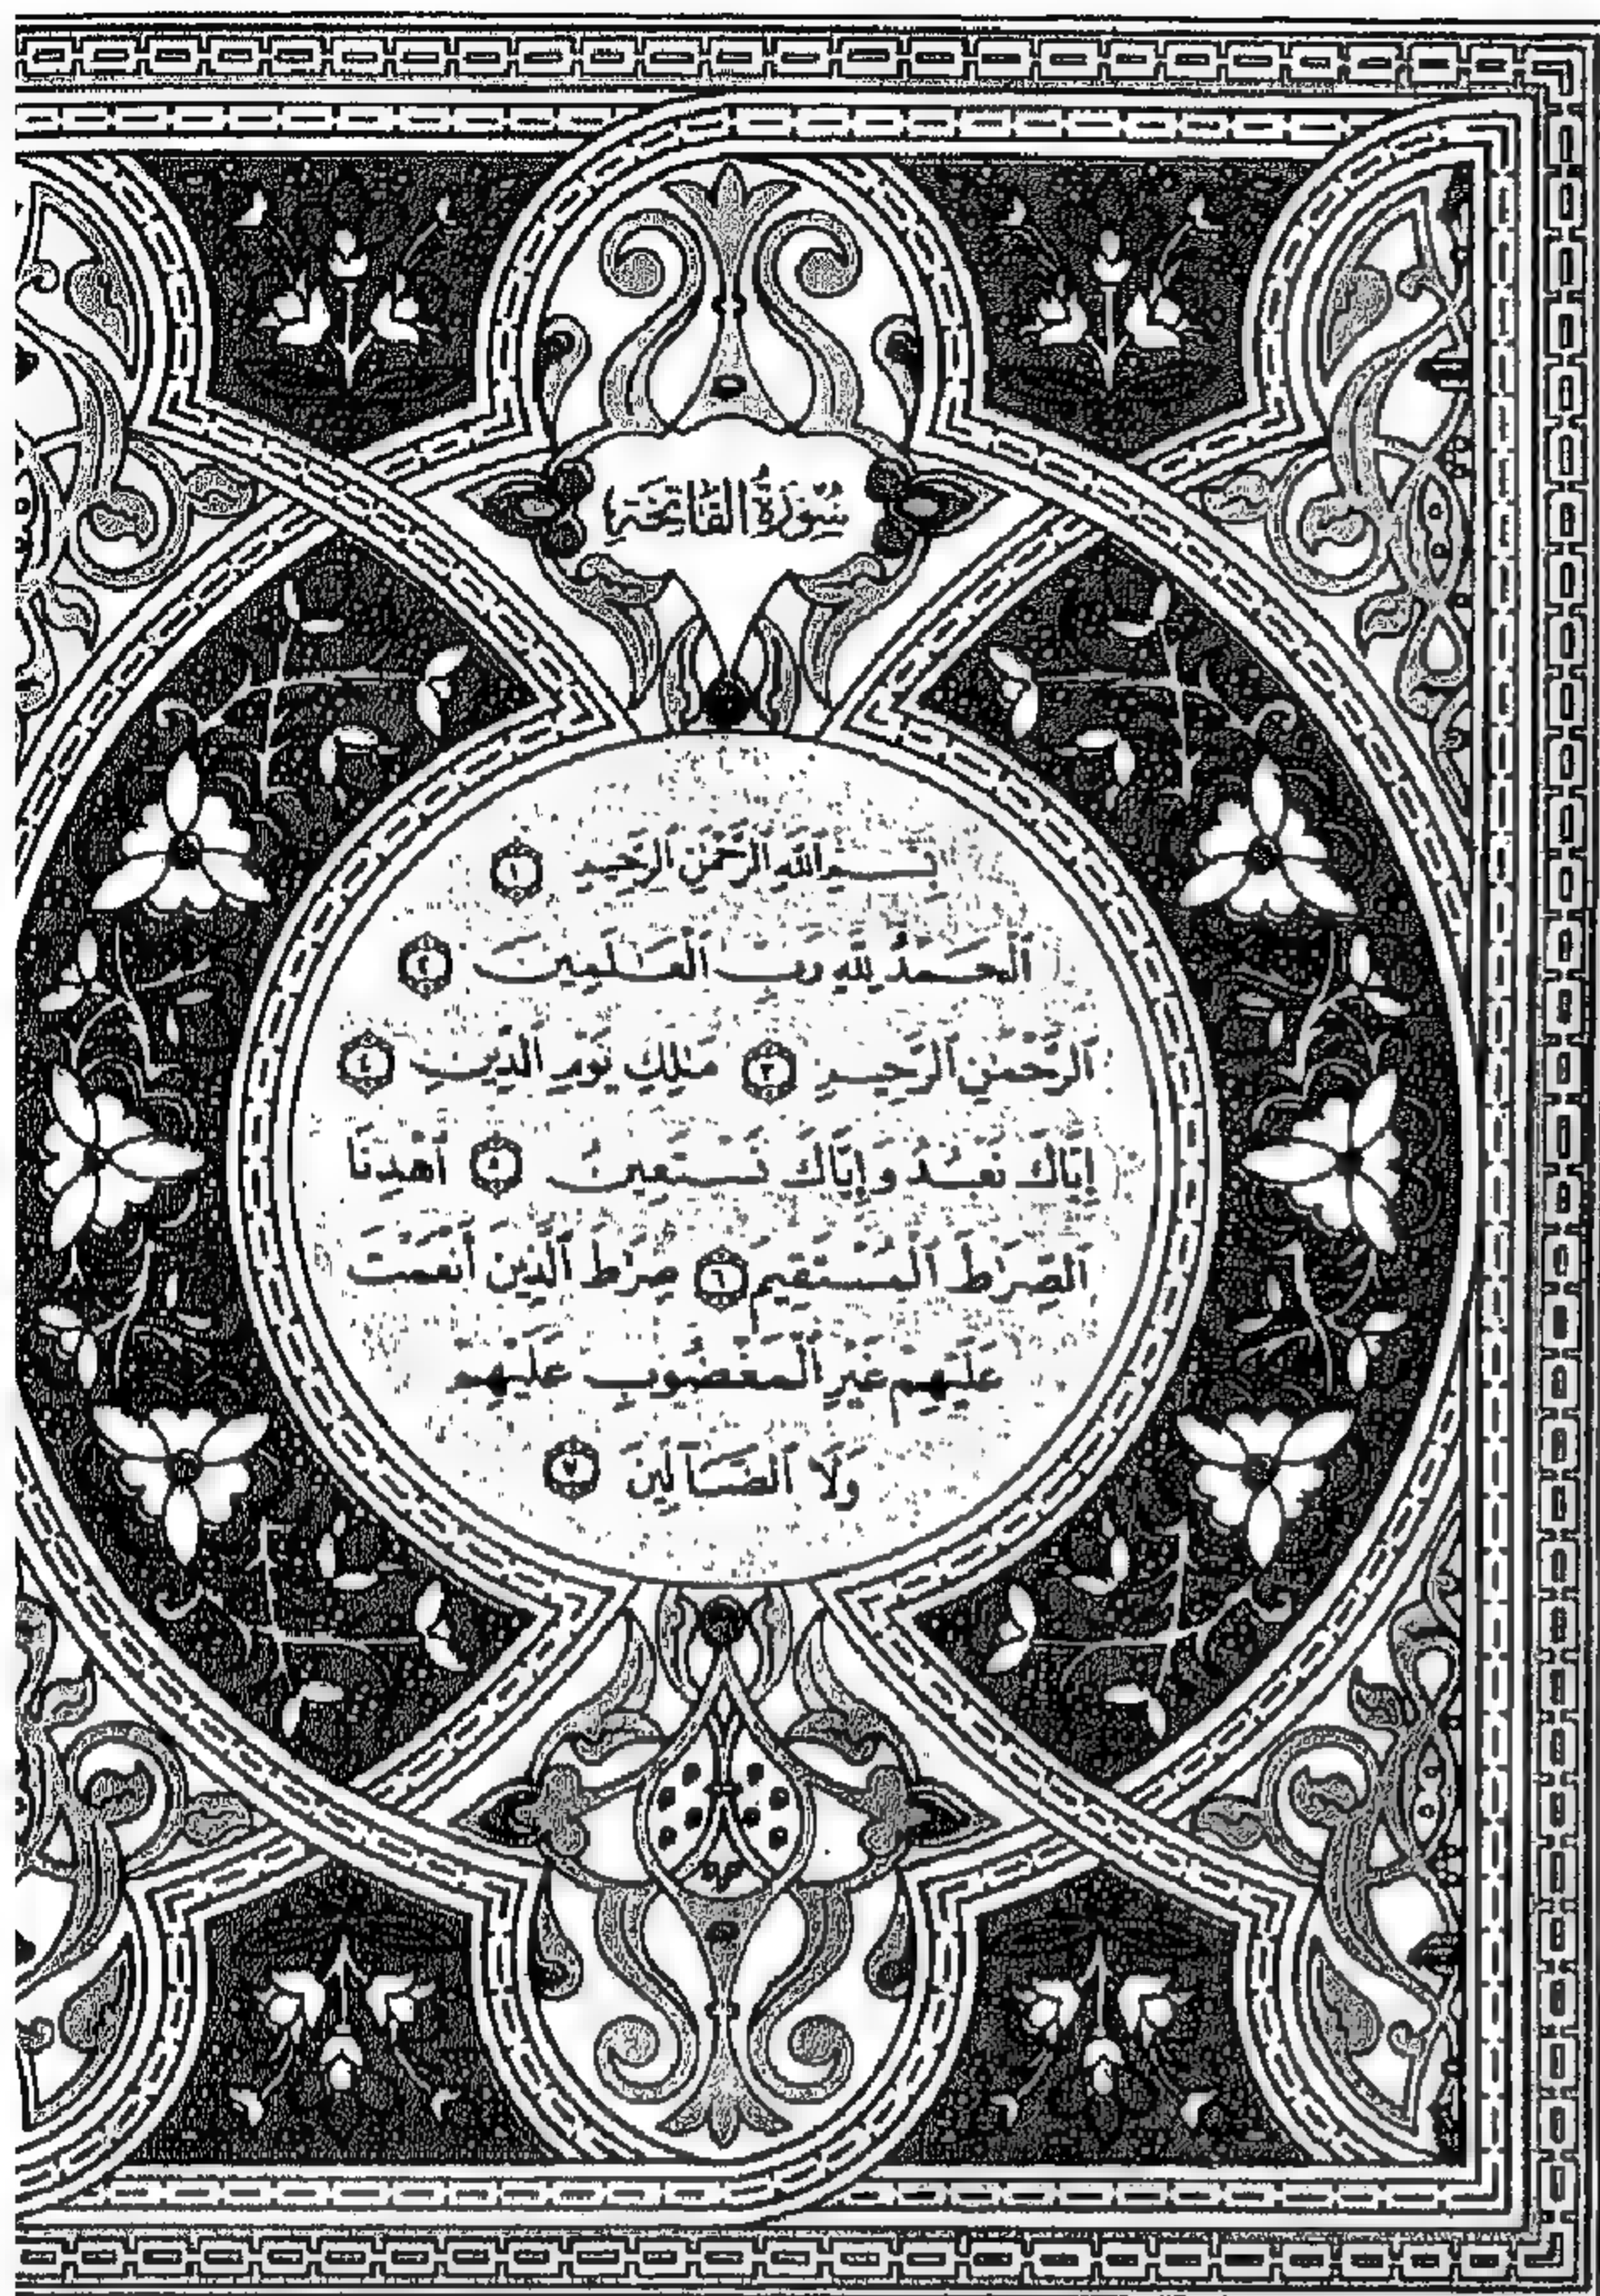 سُورَةُ الفَاتِحَةِ
بِسْمِ اللَّهِ الرَّحْمَٰنِ الرَّحِيمِ ١
ٱلْحَمْدُ لِلَّهِ رَبِّ ٱلْعَـٰلَمِينَ ٢
ٱلرَّحْمَٰنِ ٱلرَّحِيمِ ٣ مَـٰلِكِ يَوْمِ ٱلدِّينِ ٤
إِيَّاكَ نَعْبُدُ وَإِيَّاكَ نَسْتَعِينُ ٥ ٱهْدِنَا
ٱلصِّرَٰطَ ٱلْمُسْتَقِيمَ ٦ صِرَٰطَ ٱلَّذِينَ أَنْعَمْتَ
عَلَيْهِمْ غَيْرِ ٱلْمَغْضُوبِ عَلَيْهِمْ
وَلَا ٱلضَّآلِّينَ ٧